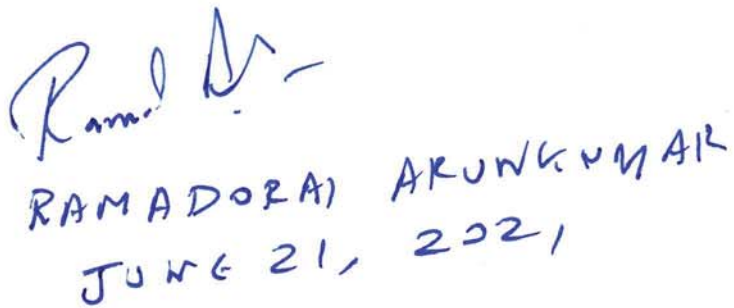 RAMADORAI ARUNKUMAR
JUNE 21, 2021